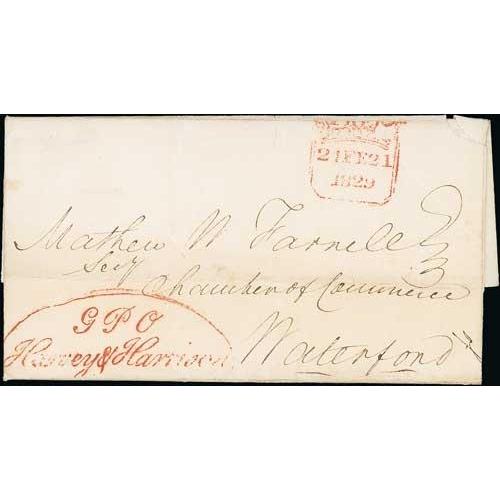 21FE21
1829
Mathew N Farrell Esq
Secy
Chamber of Commerce
Waterford
G P O
Harvey & Harrison